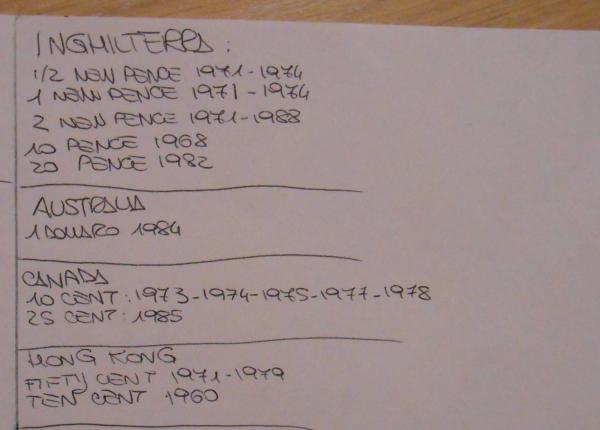 INGHILTERRA:
1/2 NEW PENCE 1971-1974
1 NEW PENCE 1971-1974
2 NEW PENCE 1971-1988
10 PENCE 1968
20 PENCE 1982
AUSTRALIA
1 DOLLARO 1984
CANADA
10 CENT: 1973-1974-1975-1977-1978
25 CENT: 1985
HONG KONG
FIFTY CENT 1971-1979
TEN CENT 1960